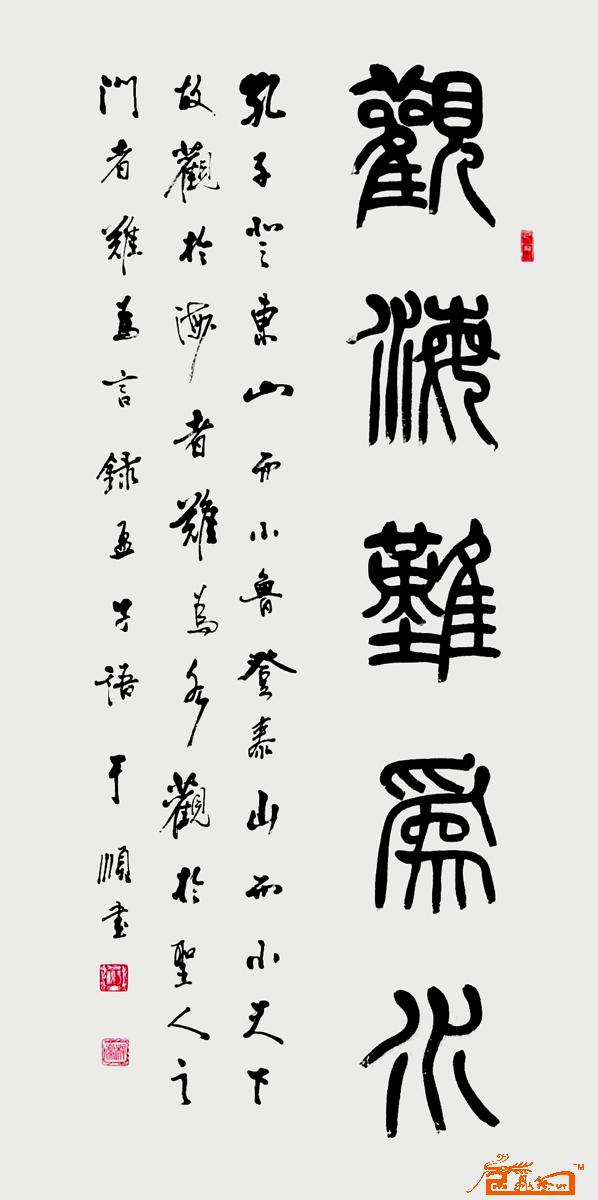 觀海難爲水
孔子登東山而小魯登泰山而小天下
故觀於海者難為水觀於聖人之
門者難為言錄孟子語于順書
TM